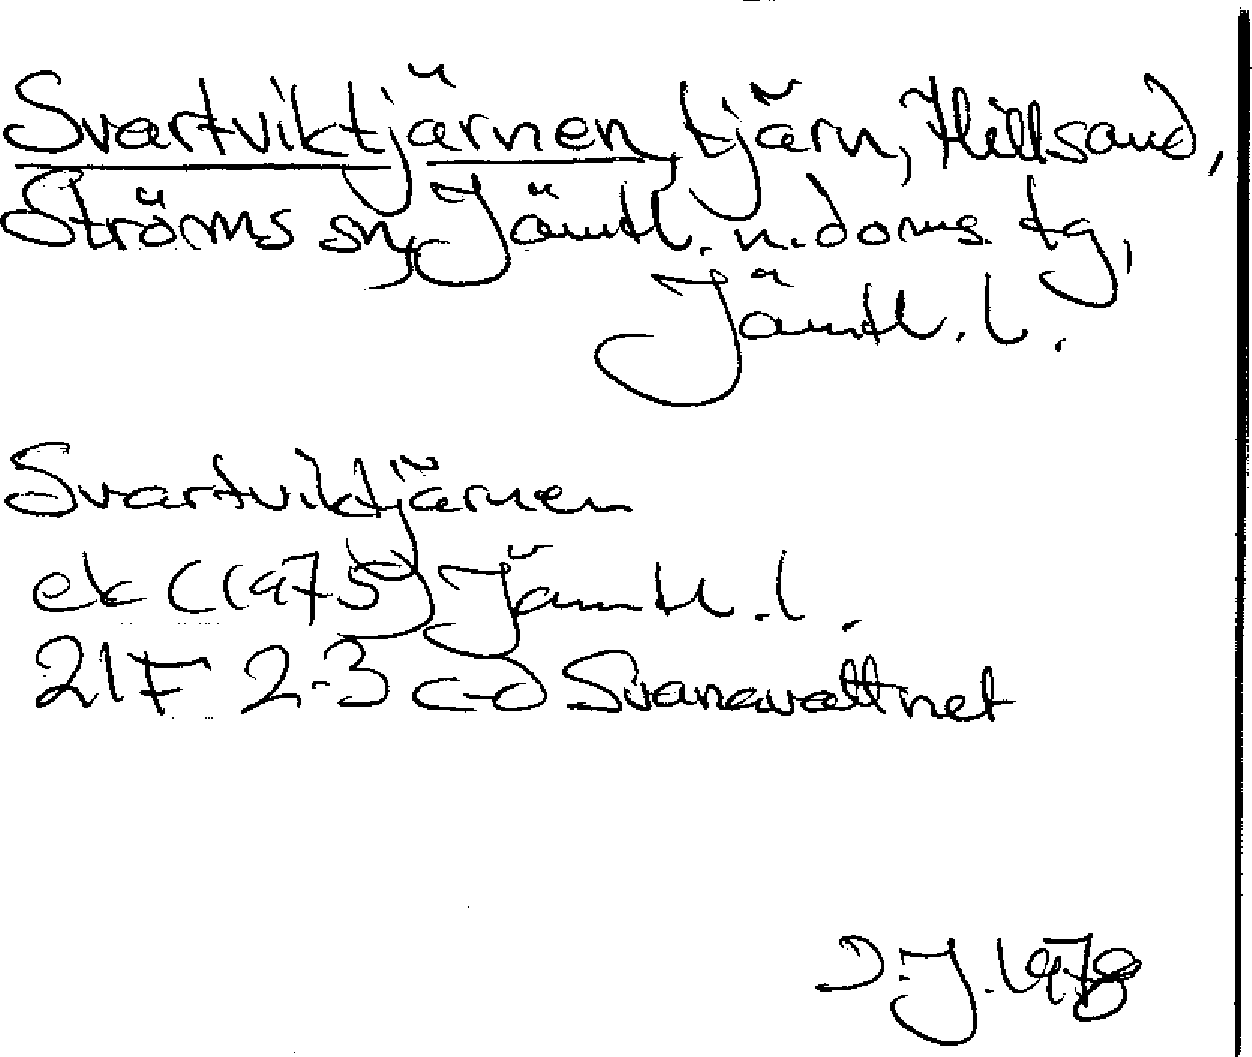 Svartviktjärnen, tjärn, Hillsand,
Ströms sn, Jämtl. n. doms. tg,
Jämtl. l.
Svartviktjärnen
ek (1975) Jämtl. l.
21F 2-3 c-d Svanavattnet
D.J. 1978